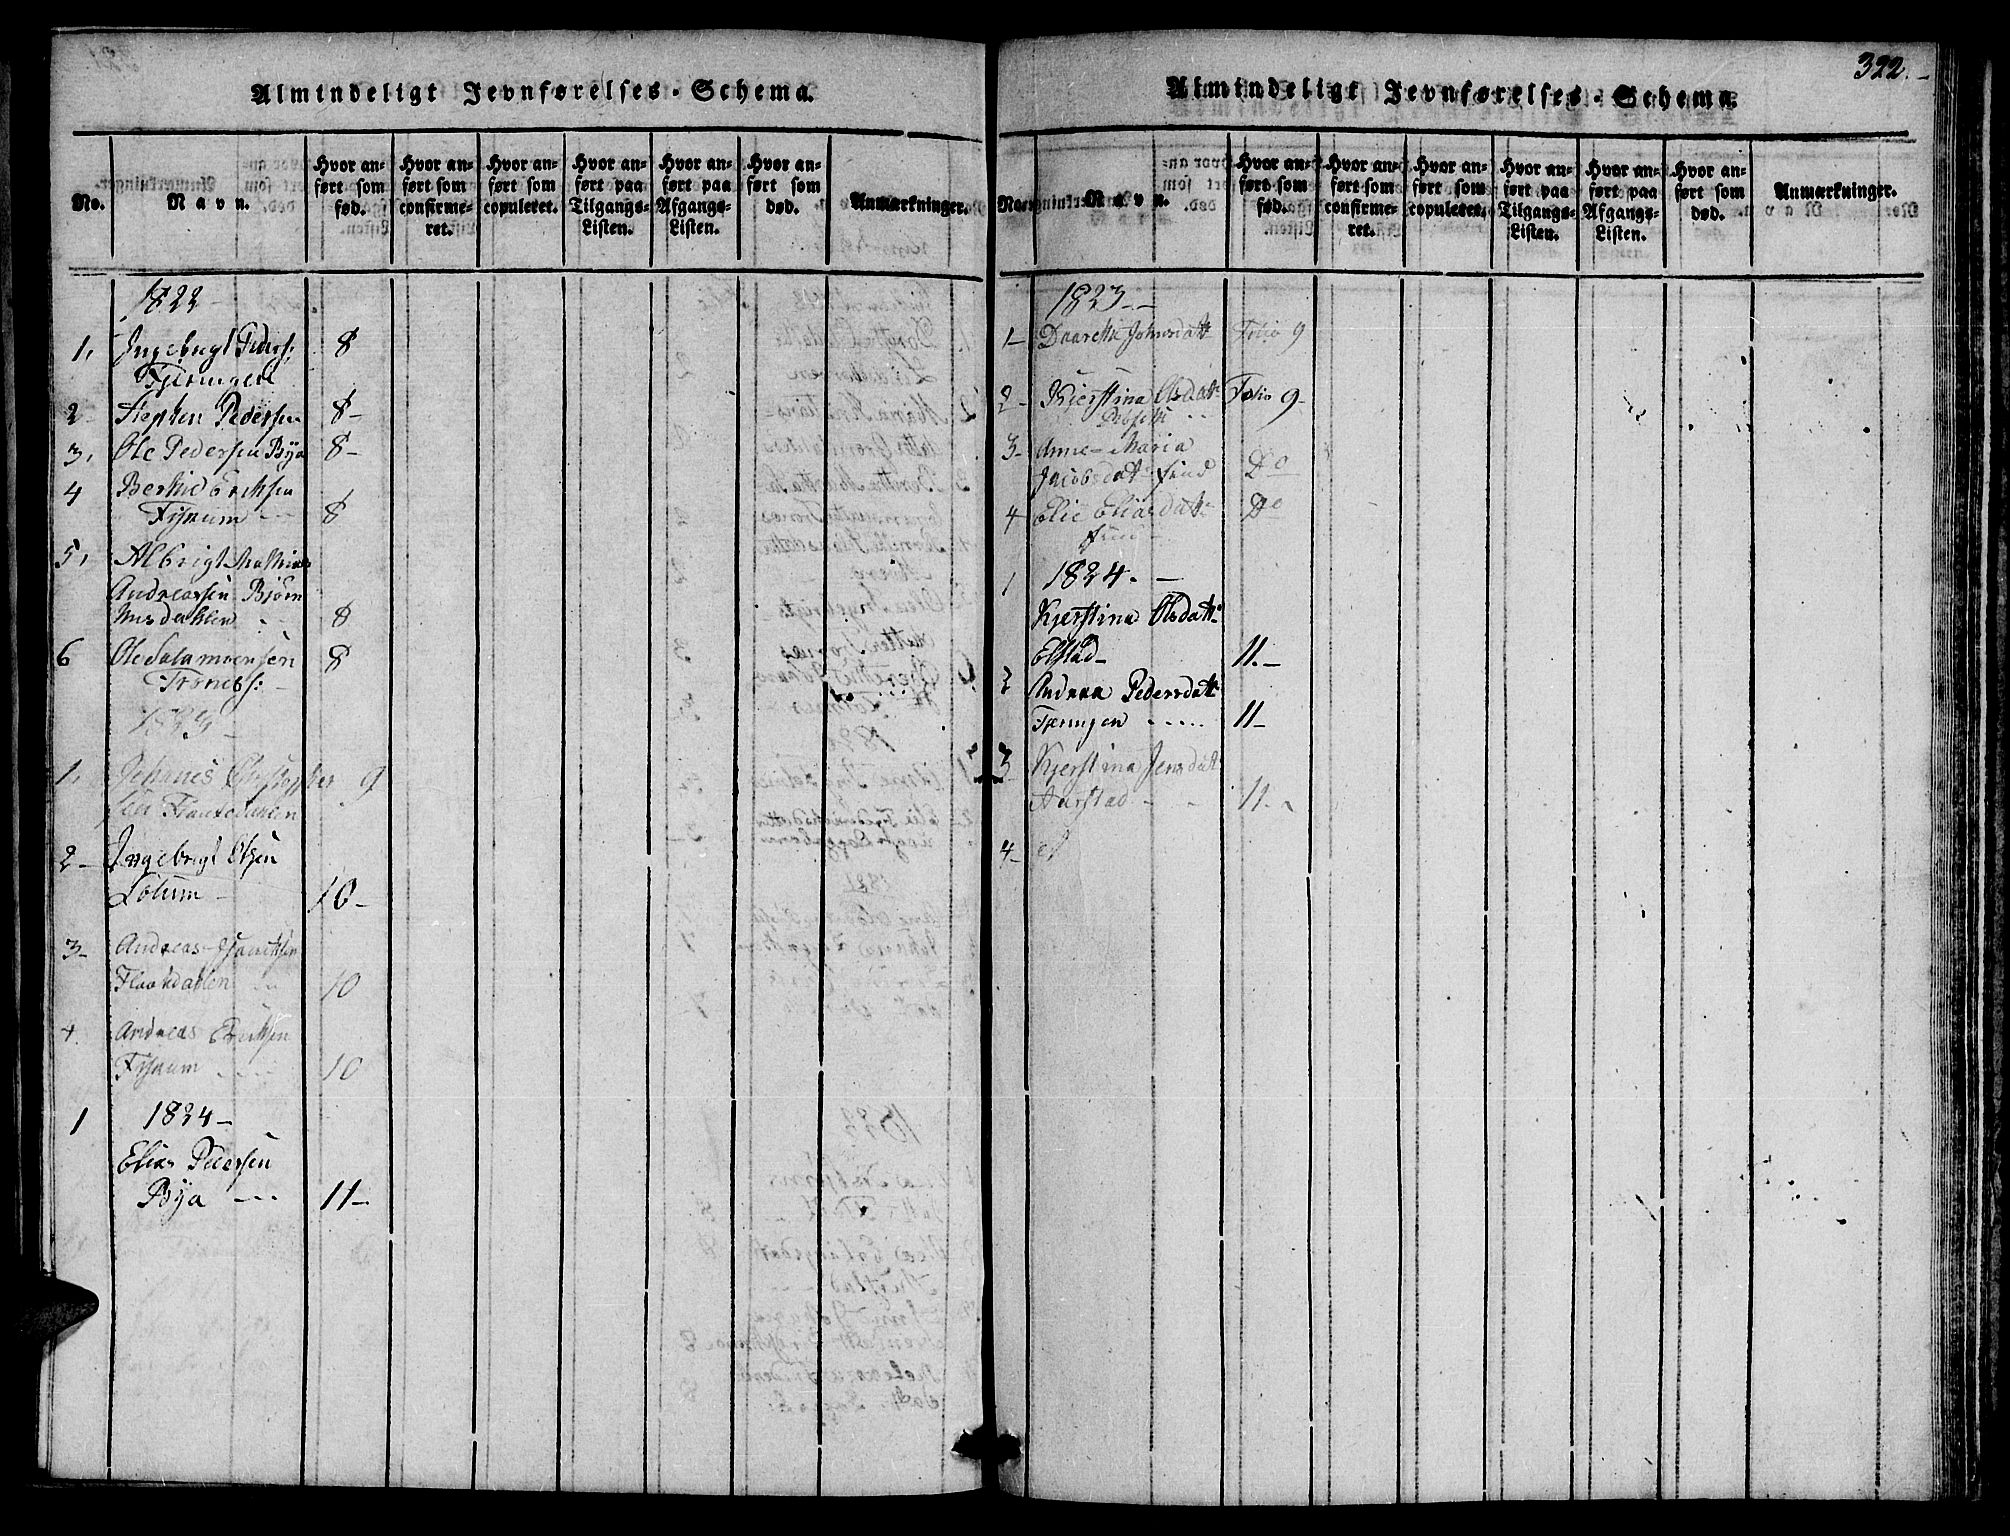 Almindeligt Jevnførelses-Schema.
No.
Navn.
Hvor an-
ført som
fød.
Hvor an-
ført som
confirme-
ret.
Hvor an-
ført som
copuleret.
Hvor an-
ført paa
Tilgangs-
Listen.
Hvor an-
ført paa
Afgangs-
Listen.
Hvor an-
ført som
død.
Anmærkninger.
1822 -
1, Ingebrigt Peders: 8
Tjeringen
2 Stephen Pedersen 8-
3, Ole Pedersen Bya 8-
4 Bernt Eriksen
Fiskum -- 8
5, Albrigt Mathias
Andreassen Bjørn
8
6 Ole Salamonsen 8
Trones: -
1823 -
1, Johanes Christopher 9
sen
2- Ingebrigt Olsen
10-
3- Andreas
10
4. Andreas Eriksen
Fiskum 10
1 1824-
Elias Pedersen
Bya --- 11-
322.-
Almindeligt Jevnførelses-Schema.
No.
Navn.
Hvor an-
ført som
fød.
Hvor an-
ført som
confirme-
ret.
Hvor an-
ført som
copuleret.
Hvor an-
ført paa
Tilgangs-
Listen.
Hvor an-
ført paa
Afgangs-
Listen.
Hvor an-
ført som
død.
Anmærkninger.
1823--
1- Johnsdatt Folio 9
2- Kjerstina Olsdatt Folio 9-
3- Anne-Maria
Jacobsdatt Do
4 Elie Eliasdatt Do
1 1824. -
Kjerstina Olsdatt
Elstad- 11.-
2 Pedersdatt
Tjeringen ..... 11-
3 Kjerstina Jensdat
Aarstad - - 11.-
4-